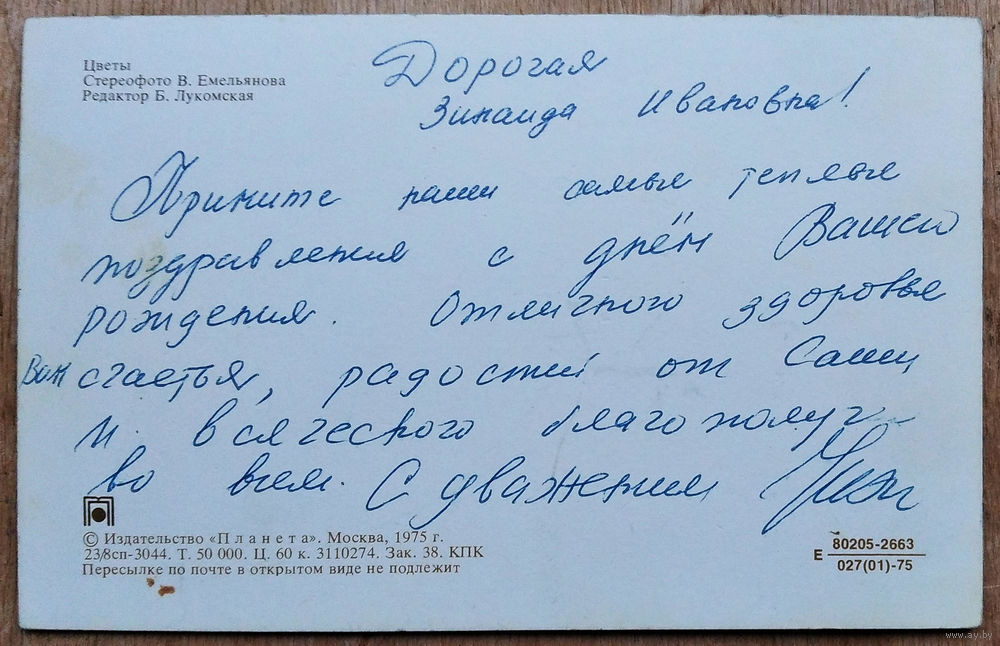 Цветы
Стереофото В. Емельянова
Редактор Б. Лукомская
Дорогая
Зинаида Ивановна!
Примите наши самые теплые
поздравления с днём Вашего
рождения. Отличного здоровья
Вам счастья, радостей от Саши
и всяческого благополуч
во всем. С уважением
© Издательство «Планета». Москва, 1975 г.
23/8сп-3044. Т. 50 000. Ц. 60 к. 3110274. Зак. 38. КПК
Пересылке по почте в открытом виде не подлежит
Е 80205-2663
027(01)-75
www.ay.by